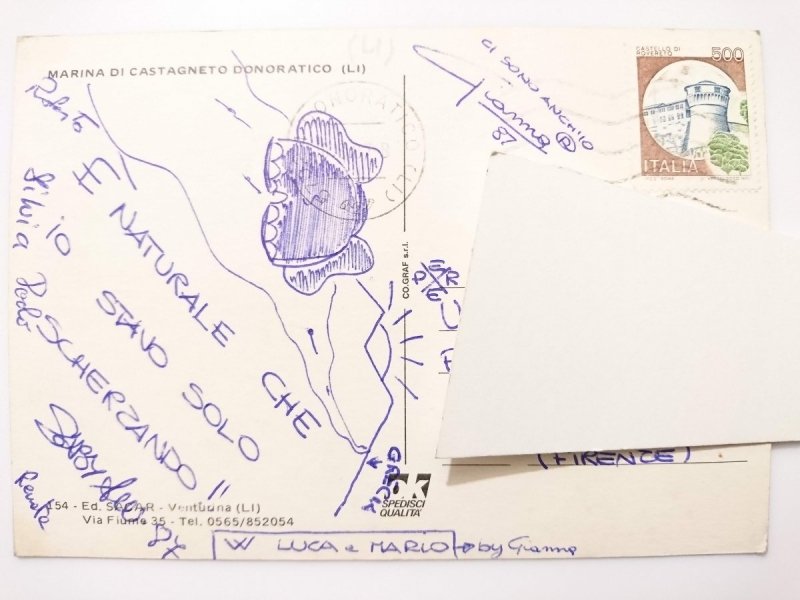 MARINA DI CASTAGNETO DONORATICO (LI)
Roberto
È NATURALE CHE
IO STAVO SOLO
SCHERZANDO!!
Silvia Dodi
Renata
CI SONO ANCH'IO
Gianna
87
CASTELLO DI
ROVERETO
500
ITALIA
CO.GRAF s.r.l.
(FIRENZE)
GAECIA
SPEDISCI
QUALITÀ
154 - Ed. SACAR - Venturina (LI)
Via Fiume 35 - Tel. 0565/852054
W LUCA e MARIO by Gianna